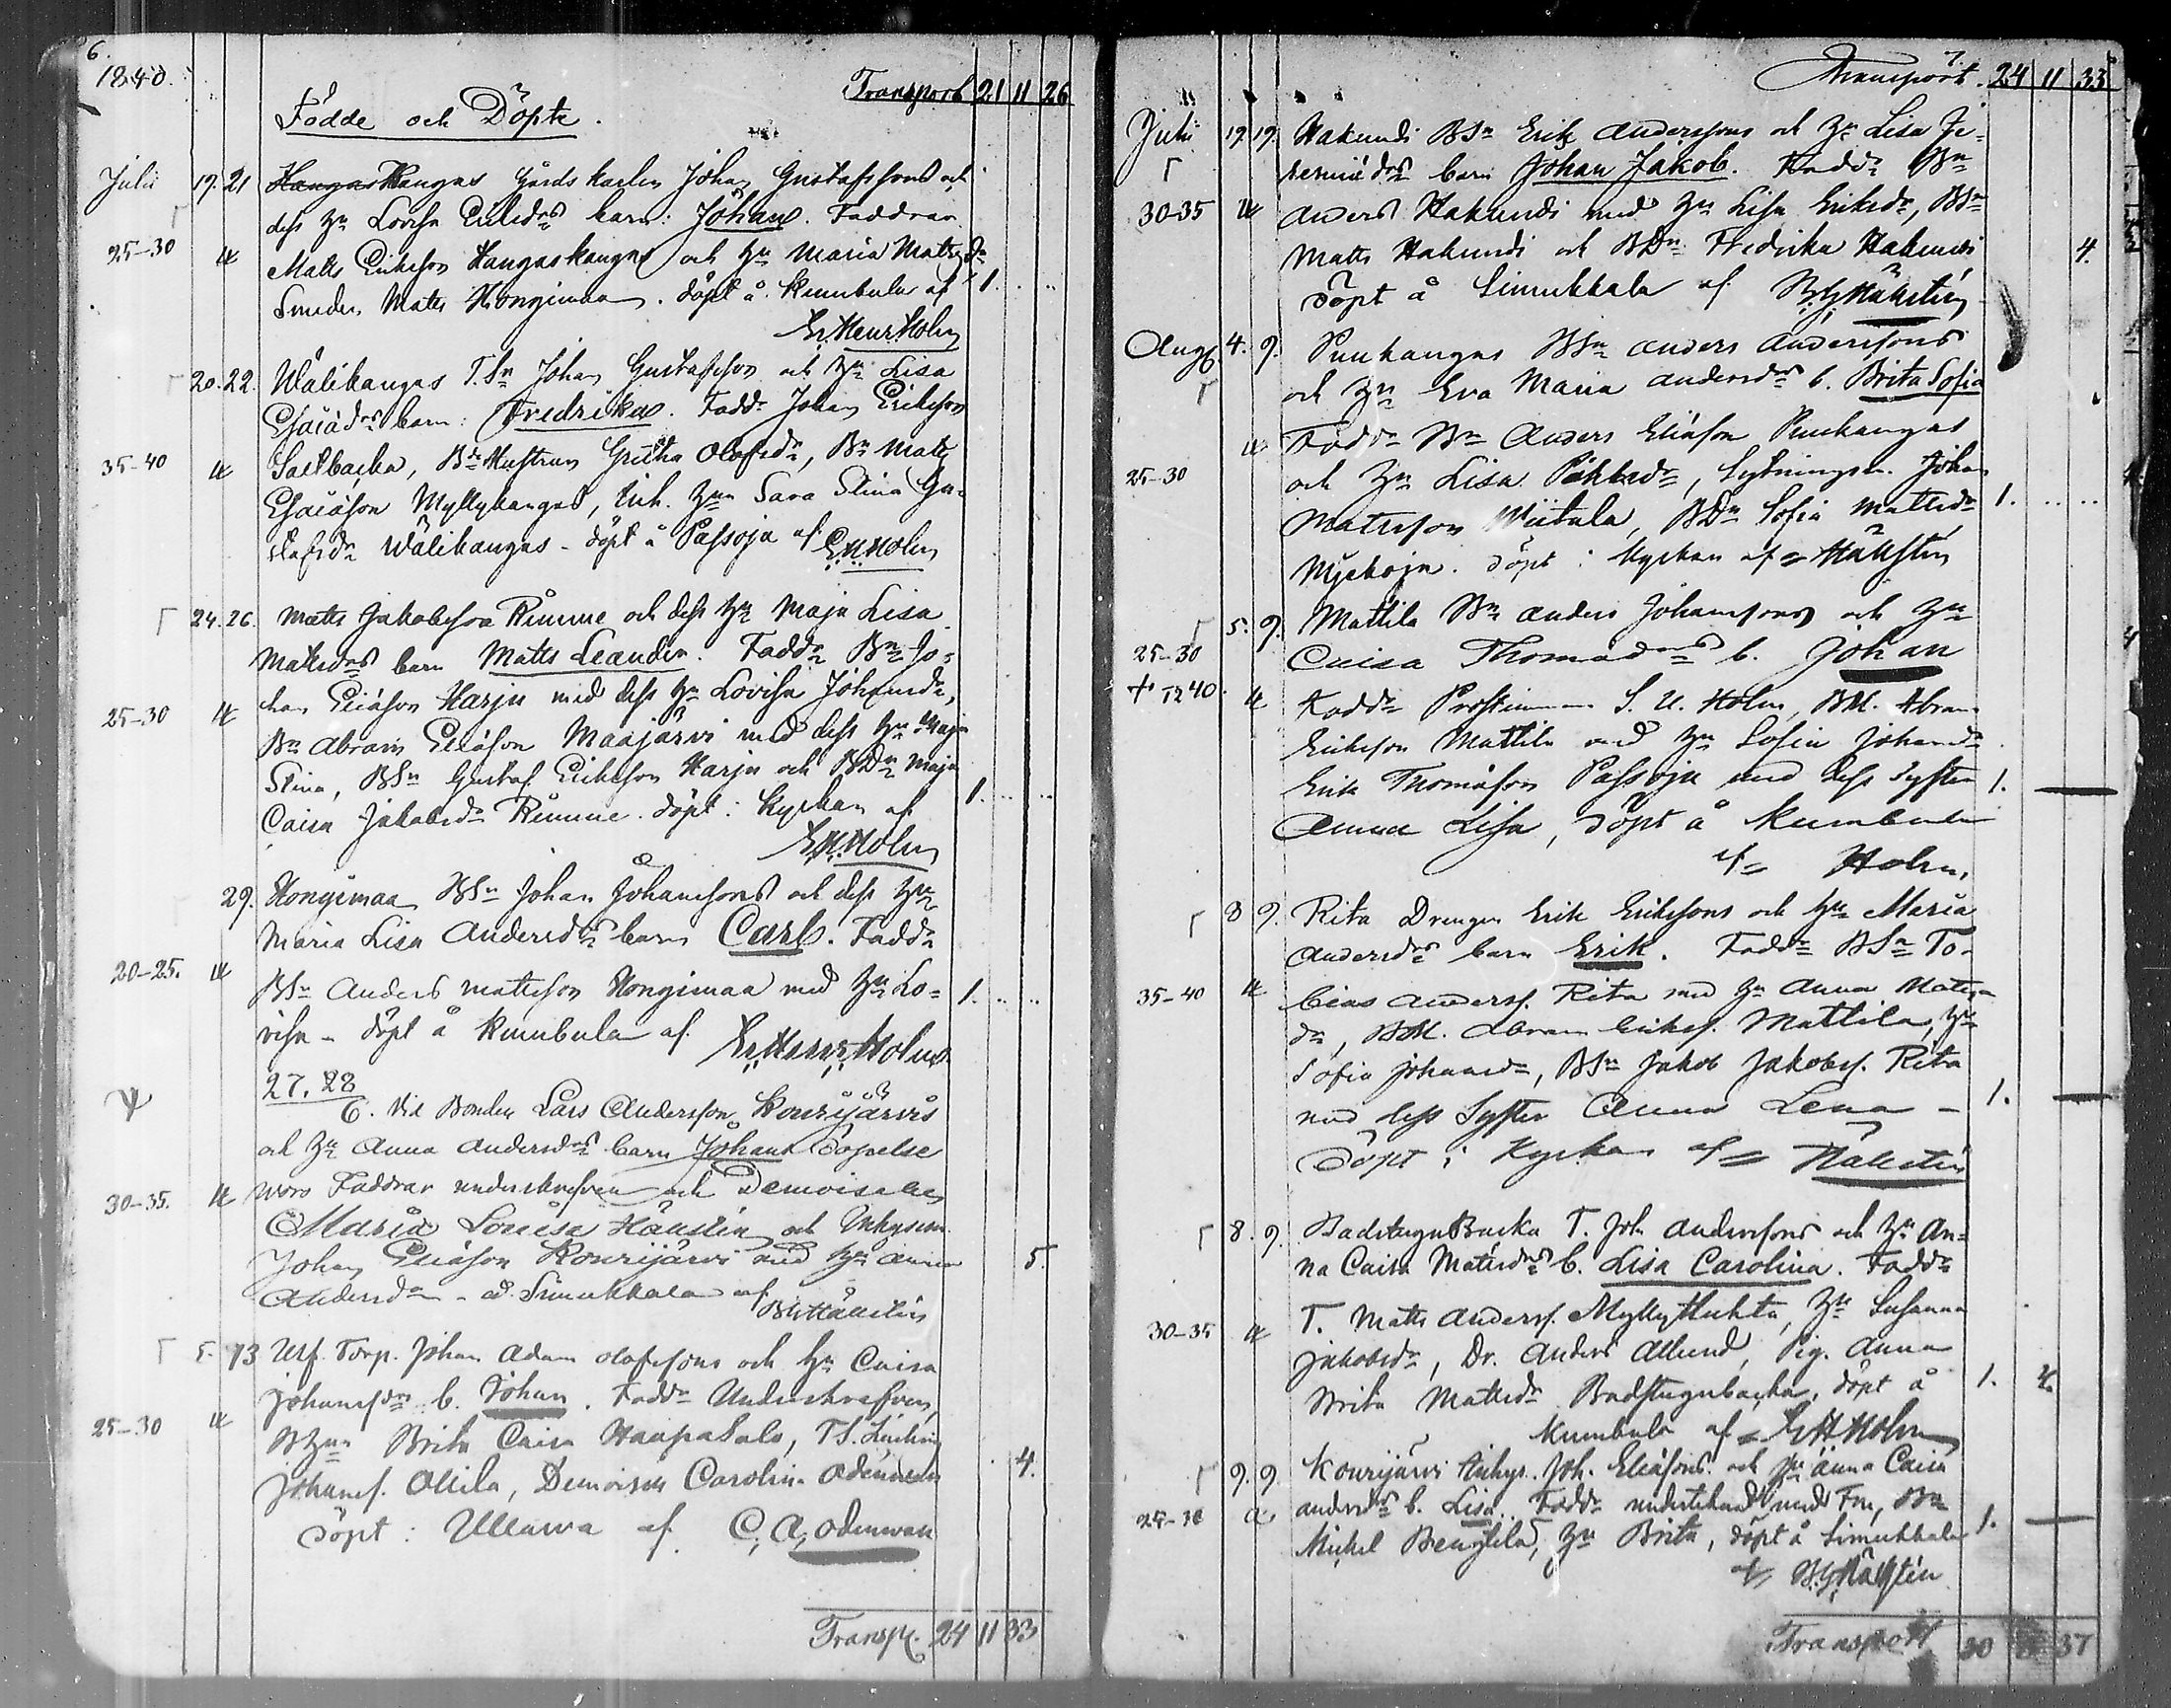 6.
1840.
Transport 21 11 26
Födde och Döpte.
Julii 19. 21 Hangas Kangas Gårdskarlen Johan Gustafssons och
dess hu Lovisa Eriksdrs barn: Johan. Faddrar
25-30 Matts Eriksson Hangaskangas och hu Maria Mattsdr
Smeden Matts Hongimaa. döpt å Kumbula af 1.
Er. Henr. Holm
20. 22. Wälikangas T.Sn Johan Gustafsson och hu Lisa
Esaiædrs barn: Fredrika. Fadd. Johan Eriksson
35-40 Backa, Hustrun Greta Olofsdr, Bn Matts
Esaiæson Myllykangas, Enk. Sara Stina Gu-
stafsdr Wälikangas - döpt å Passoja af E.H. Holm
24. 26. Matts Jakobsson Rimme och dess hu Maja Lisa
Mattsdrs barn Matts Leander. Faddr Bn Jo-
25-30 han Eliæson Harju med dess hu Lovisa Johansdr,
Bn Abram Eliæson Maajärvi med dess hu Maja
Stina, BSn Gustaf Eriksson Harju och BDn Maja
Caisa Jakobsdr Rimme. döpt i Kyrkan af 1.
E.H. Holm
29. Hongimaa BSn Johan Johanssons och dess hu
Maria Lisa Andersdrs barn Carl. Faddr
20-25. BSn Anders Mattsson Hongimaa med hu Lo- 1.
visa - döpt å Kumbula af Er. Henr. Holm
27. 28
6. Vid Bonden Lars Andersson Kourijärvis
och hu Anna Andersdrs barn Johans döpelse
30-35. woro Faddrar underskrefven och Demoiselle
Maria Lovisa Hällstén och Inhysm.
Johan Eliæson Kourijärvi med hu Anna 5.
Andersdr - å Simukkala af
B.G. Hällstén
5. 13 Utf. Torp. Johan Adam Olofssons och hu Caisa
Johansdrs b. Johan. Fadd. Underskrefven,
25-30 Brita Caisa Haapasalo, TS.
Johans. Ollila, Demoisell Carolin Odenwall 4.
döpt i Ullawa af C. A. Odenwall
Transp. 24 11 33
7
Transport. 24 11 33
Julii 19. 19. Hakundi BSn Erik Anderssons och hu Lisa Je-
remiædrs barn Johan Jakob. Fadd. Bn
30-35 Anders Hakundi med hu Lisa Eriksdr, BSn
Matts Hakundi och BDn Fredrika Hakundi 4.
döpt å Simukkala af B.G. Hällstén
Aug. 4. 9. Punkangas BSn Anders Anderssons
och hu Eva Maria Andersdrs b. Brita Sofia
Fadd. Bn Anders Eliæson Punkangas
25-30 och hu Lisa, Sytningsm. Johan
Mattsson Wiitala, BDn Sofia Mattsdr 1.
döpt i Kyrkan af Hällstén
5. 9. Mattila Bn Anders Johanssons och hu
25-30 Caisa Thomædrs b. Johan
40 Fadd. Prostinnan S. U. Holm, BM. Abram
Eriksson Mattila med hu Sofia Johansdr
Erik Thomæson Passoja med dess Syster 1.
Anna Lisa, döpt å Kumbula
af Holm.
8 9. Rita Drengen Erik Erikssons och hu Maria
Andersdrs barn Erik. Fadd. BSn To-
35-40 bias Anderss. Rita med hu Anna Matts-
dr, BM. Abram Erikss. Mattila, hu
Sofia Johansdr, BSn Jakob Jakobss. Rita
med dess Syster Anna Lena - 1.
Döpt i Kyrkan af Hällstén
8. 9. BadstuguBacka T. Joh. Anderssons och hu An-
na Caisa Mattsdrs b. Lisa Carolina. Fadd.
30-35 T. Matts Anderss. MyllyHuhta, hu Susanna
Jakobsdr, Dr. Anders Allund, Pig. Anna
Brita Mattsdr Badstugubacka, döpt å 1. 4.
Kumbula af E.H. Holm
9. 9. Kourijärvi Inhys. Joh. Eliæsons och hu Anna Caisa
andersdrs b. Lisa. Fadd. undertecknad med Fru, Bn
Michel Bengtila, hu Brita, döpt å Simukkala 1.
af B.G. Hällstén
Transport 30 37